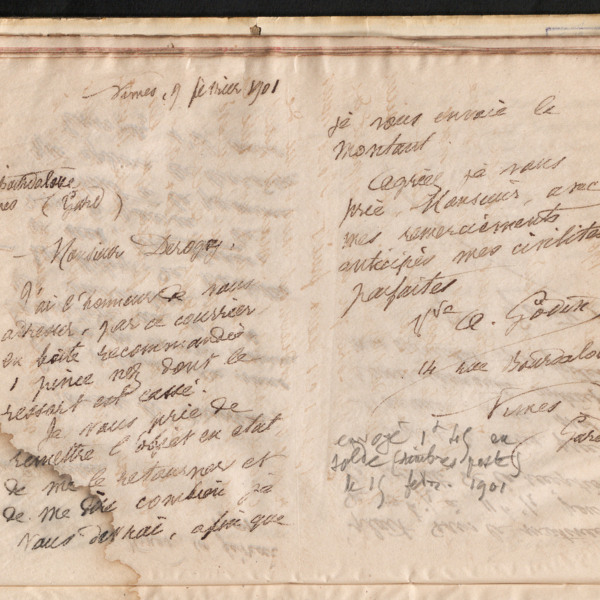 Nimes, 9 février 1901
Bourdaloue
(Gard)
Monsieur Derogy.
J'ai l'honneur de vous
adresser, par ce courrier
en boîte recommandée
1 pince nez dont le
ressort est cassé.
Je vous prie de
remettre l'objet en état,
de me le retourner et
de me dire combien je
vous devrai, afin que
je vous envoie le
montant.
Agréez je vous
prie, Monsieur, avec
mes remerciements
anticipés mes civilités
parfaites
Vve A. Godin
14 rue Bourdaloue
Nimes
Gard
envoyé 1f 45 en
timbres poste
le 15 febr. 1901